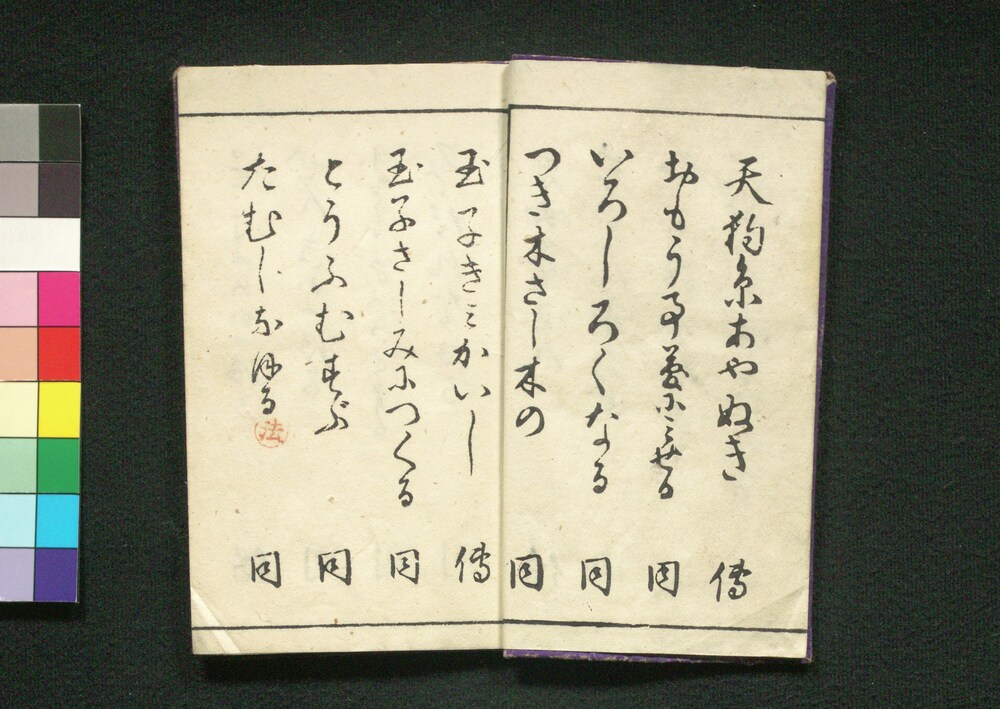 天狗糸あやぬき 傳
おもう事夢にみせる 同
いろしろくなる 同
つき木さし木の 同
玉子きミかいし 傳
玉子さしみにつくる 同
とうふむすぶ 同
たむしなほる 法 同